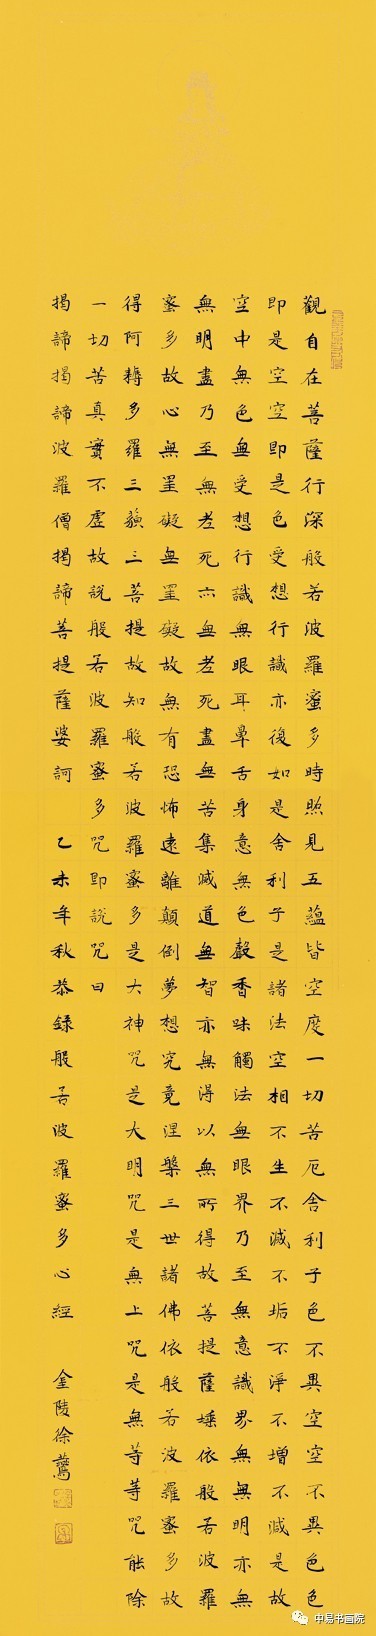 觀自在菩薩行深般若波羅蜜多時照見五蘊皆空度一切苦厄舍利子色不異空空不異色色
即是空空即是色受想行識亦復如是舍利子是諸法空相不生不滅不垢不淨不增不減是故
空中無色無受想行識無眼耳鼻舌身意無色聲香味觸法無眼界乃至無意識界無無明亦無
無明盡乃至無老死亦無老死盡無苦集滅道無智亦無得以無所得故菩提薩埵依般若波羅
蜜多故心無罣礙無罣礙故無有恐怖遠離顛倒夢想究竟涅槃三世諸佛依般若波羅蜜多故
得阿耨多羅三藐三菩提故知般若波羅蜜多是大神咒是大明咒是無上咒是無等等咒能除
一切苦真實不虛故說般若波羅蜜多咒即說咒曰
揭諦揭諦波羅僧揭諦菩提薩婆訶 乙未年秋恭錄般若波羅蜜多心經 金陵徐鶯
中易书画院